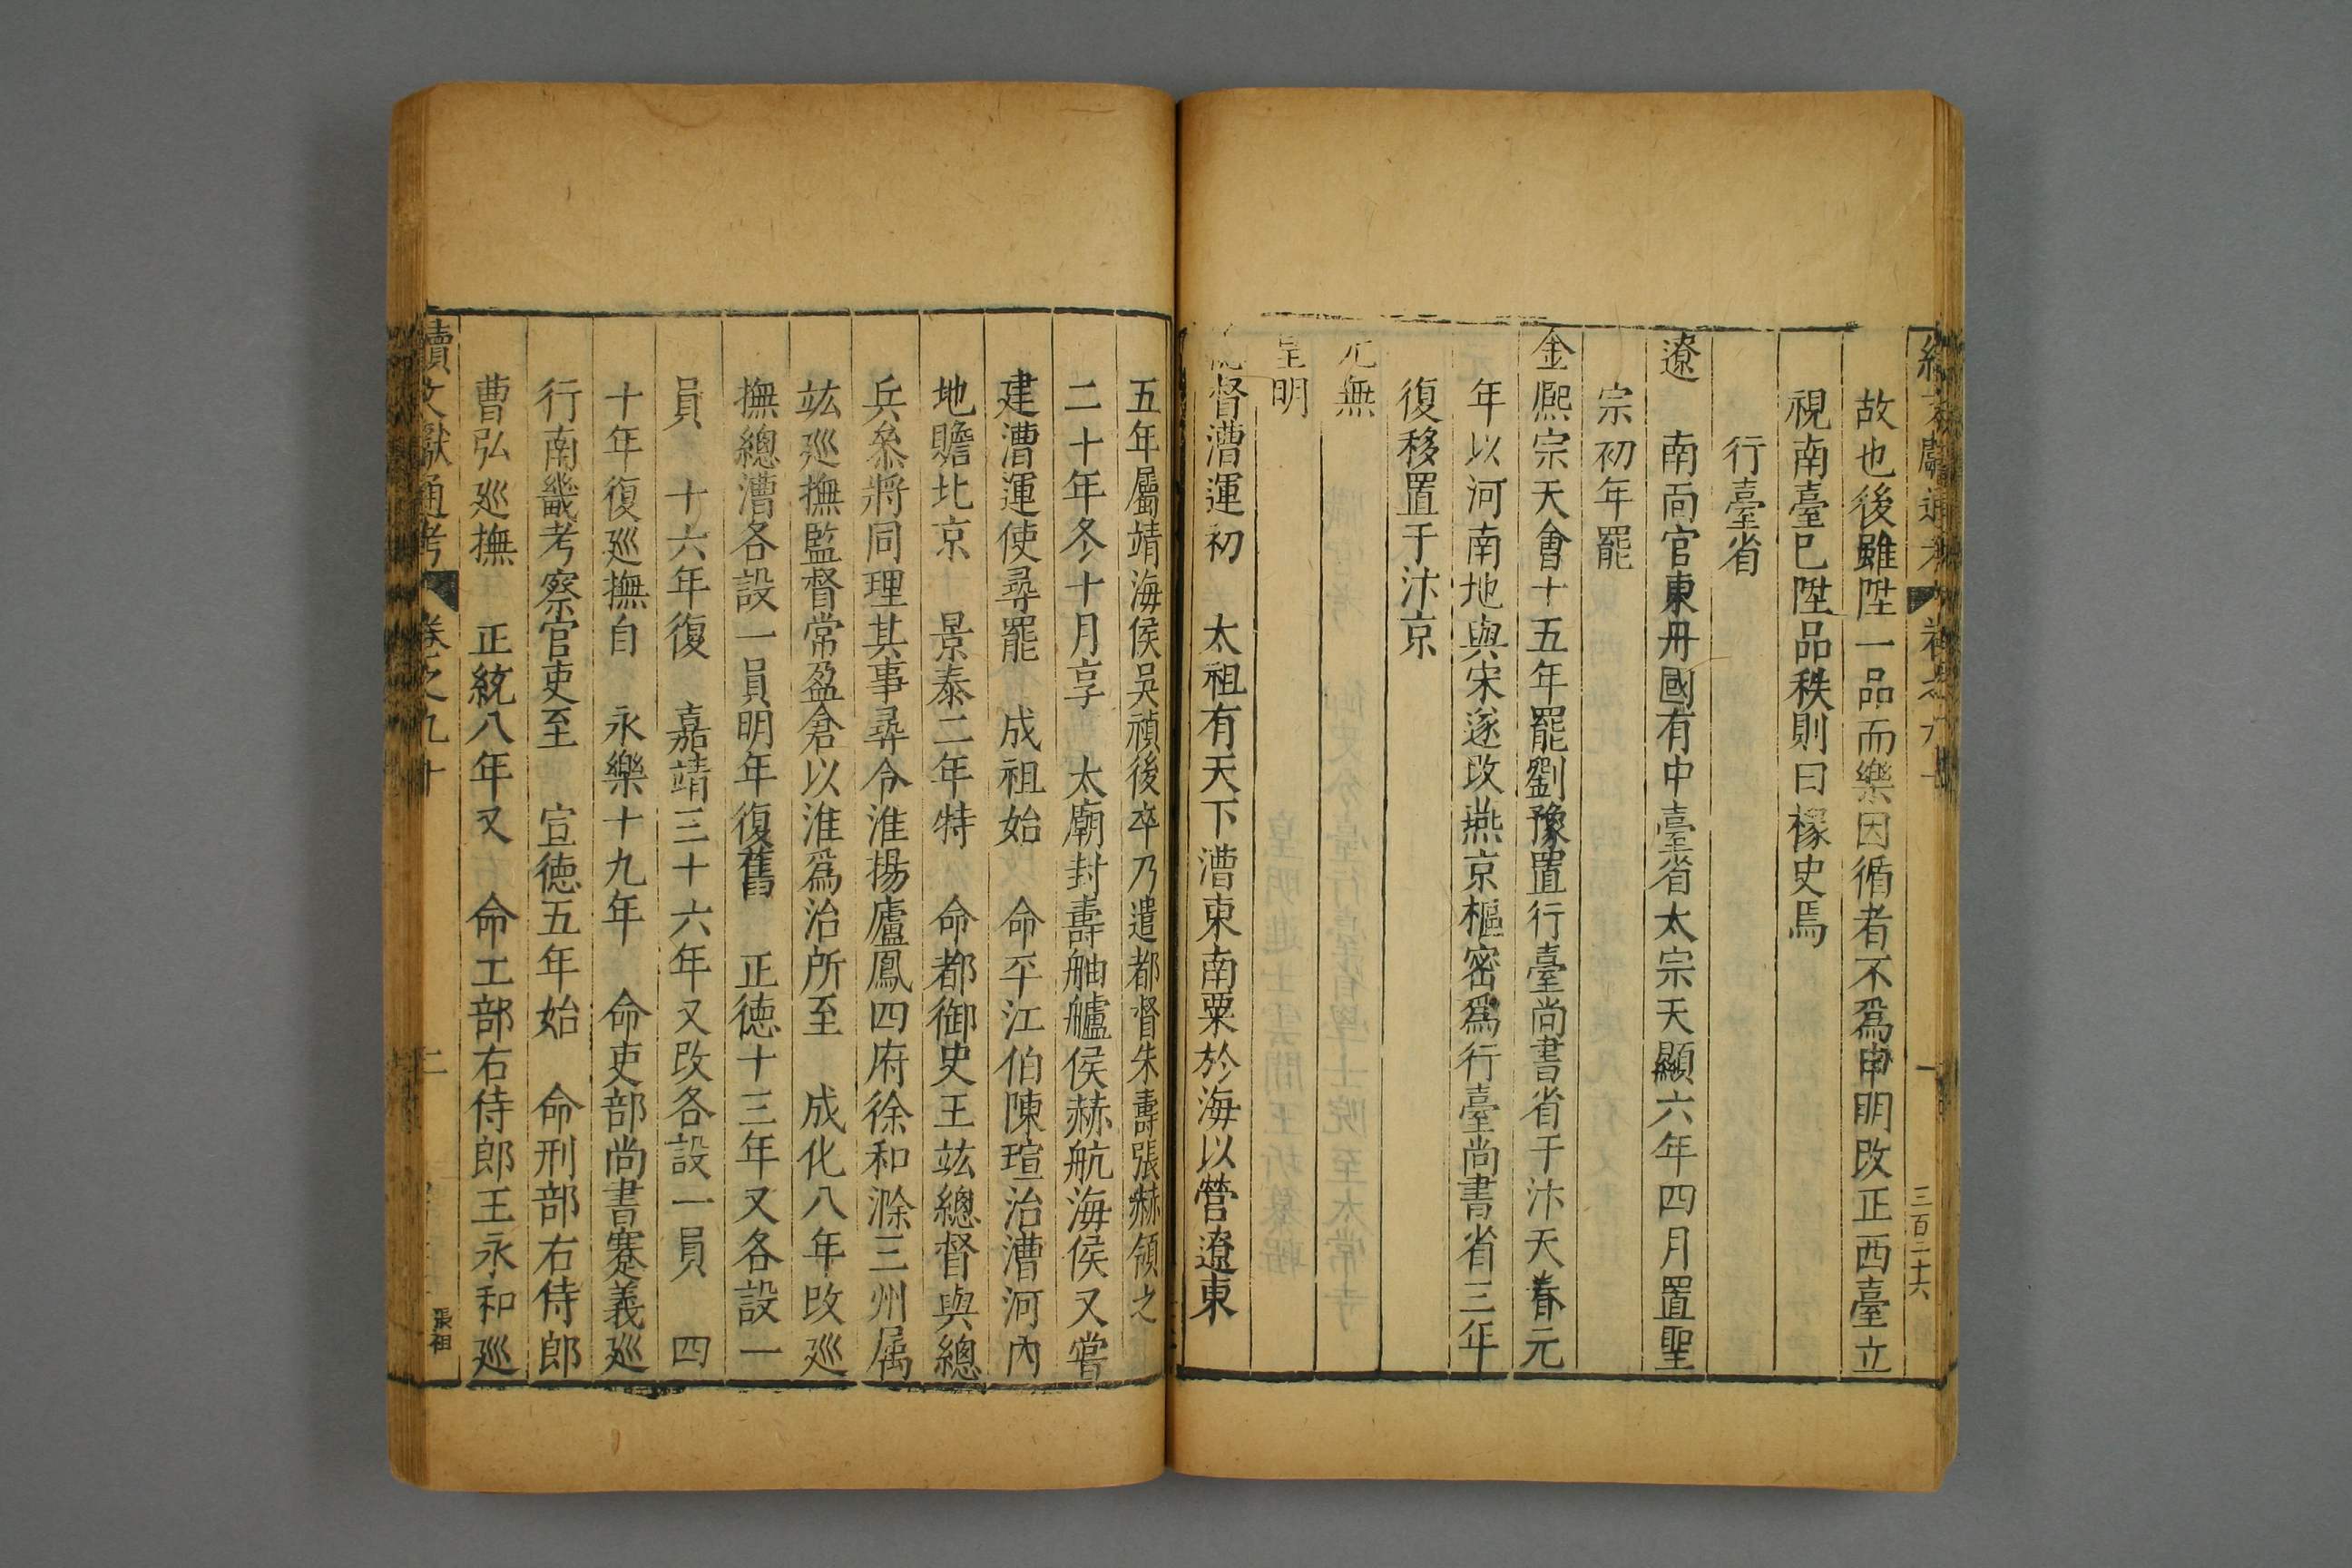 故也後雖陞一品而樂因循者不爲申明改正西臺立
視南臺已陞品秩則曰椽史焉
行臺省
遼　南面官東丹國有中臺省太宗天顯六年四月置聖
宗初年罷
金熙宗天會十五年罷劉豫置行臺尚書省于汴天眷元
年以河南地與宋遂改燕京樞密爲行臺尚書省三年
復移置于汴京
元無
皇明
總督漕運初　太祖有天下漕東南粟於海以營遼東
五年屬靖海侯吳禎後卒乃遣都督朱壽張赫領之
二十年冬十月享　太廟封壽舳艫侯赫航海侯又嘗
建漕運使尋罷　成祖始　命平江伯陳瑄治漕河內
地贍北京　景泰二年特　命都御史王竑總督與總
兵叅將同理其事尋令淮揚廬鳳四府徐和滁三州属
竑廵撫監督常盈倉以淮爲治所至　成化八年改廵
撫總漕各設一員明年復舊　正德十三年又各設一
員　十六年復　嘉靖三十六年又改各設一員　四
十年復廵撫自　永樂十九年　命吏部尚書蹇義廵
行南畿考察官吏至　宣德五年始　命刑部右侍郎
曹弘廵撫　正統八年又　命工部右侍郎王永和廵
續文獻通考　卷之九十　二　張祖